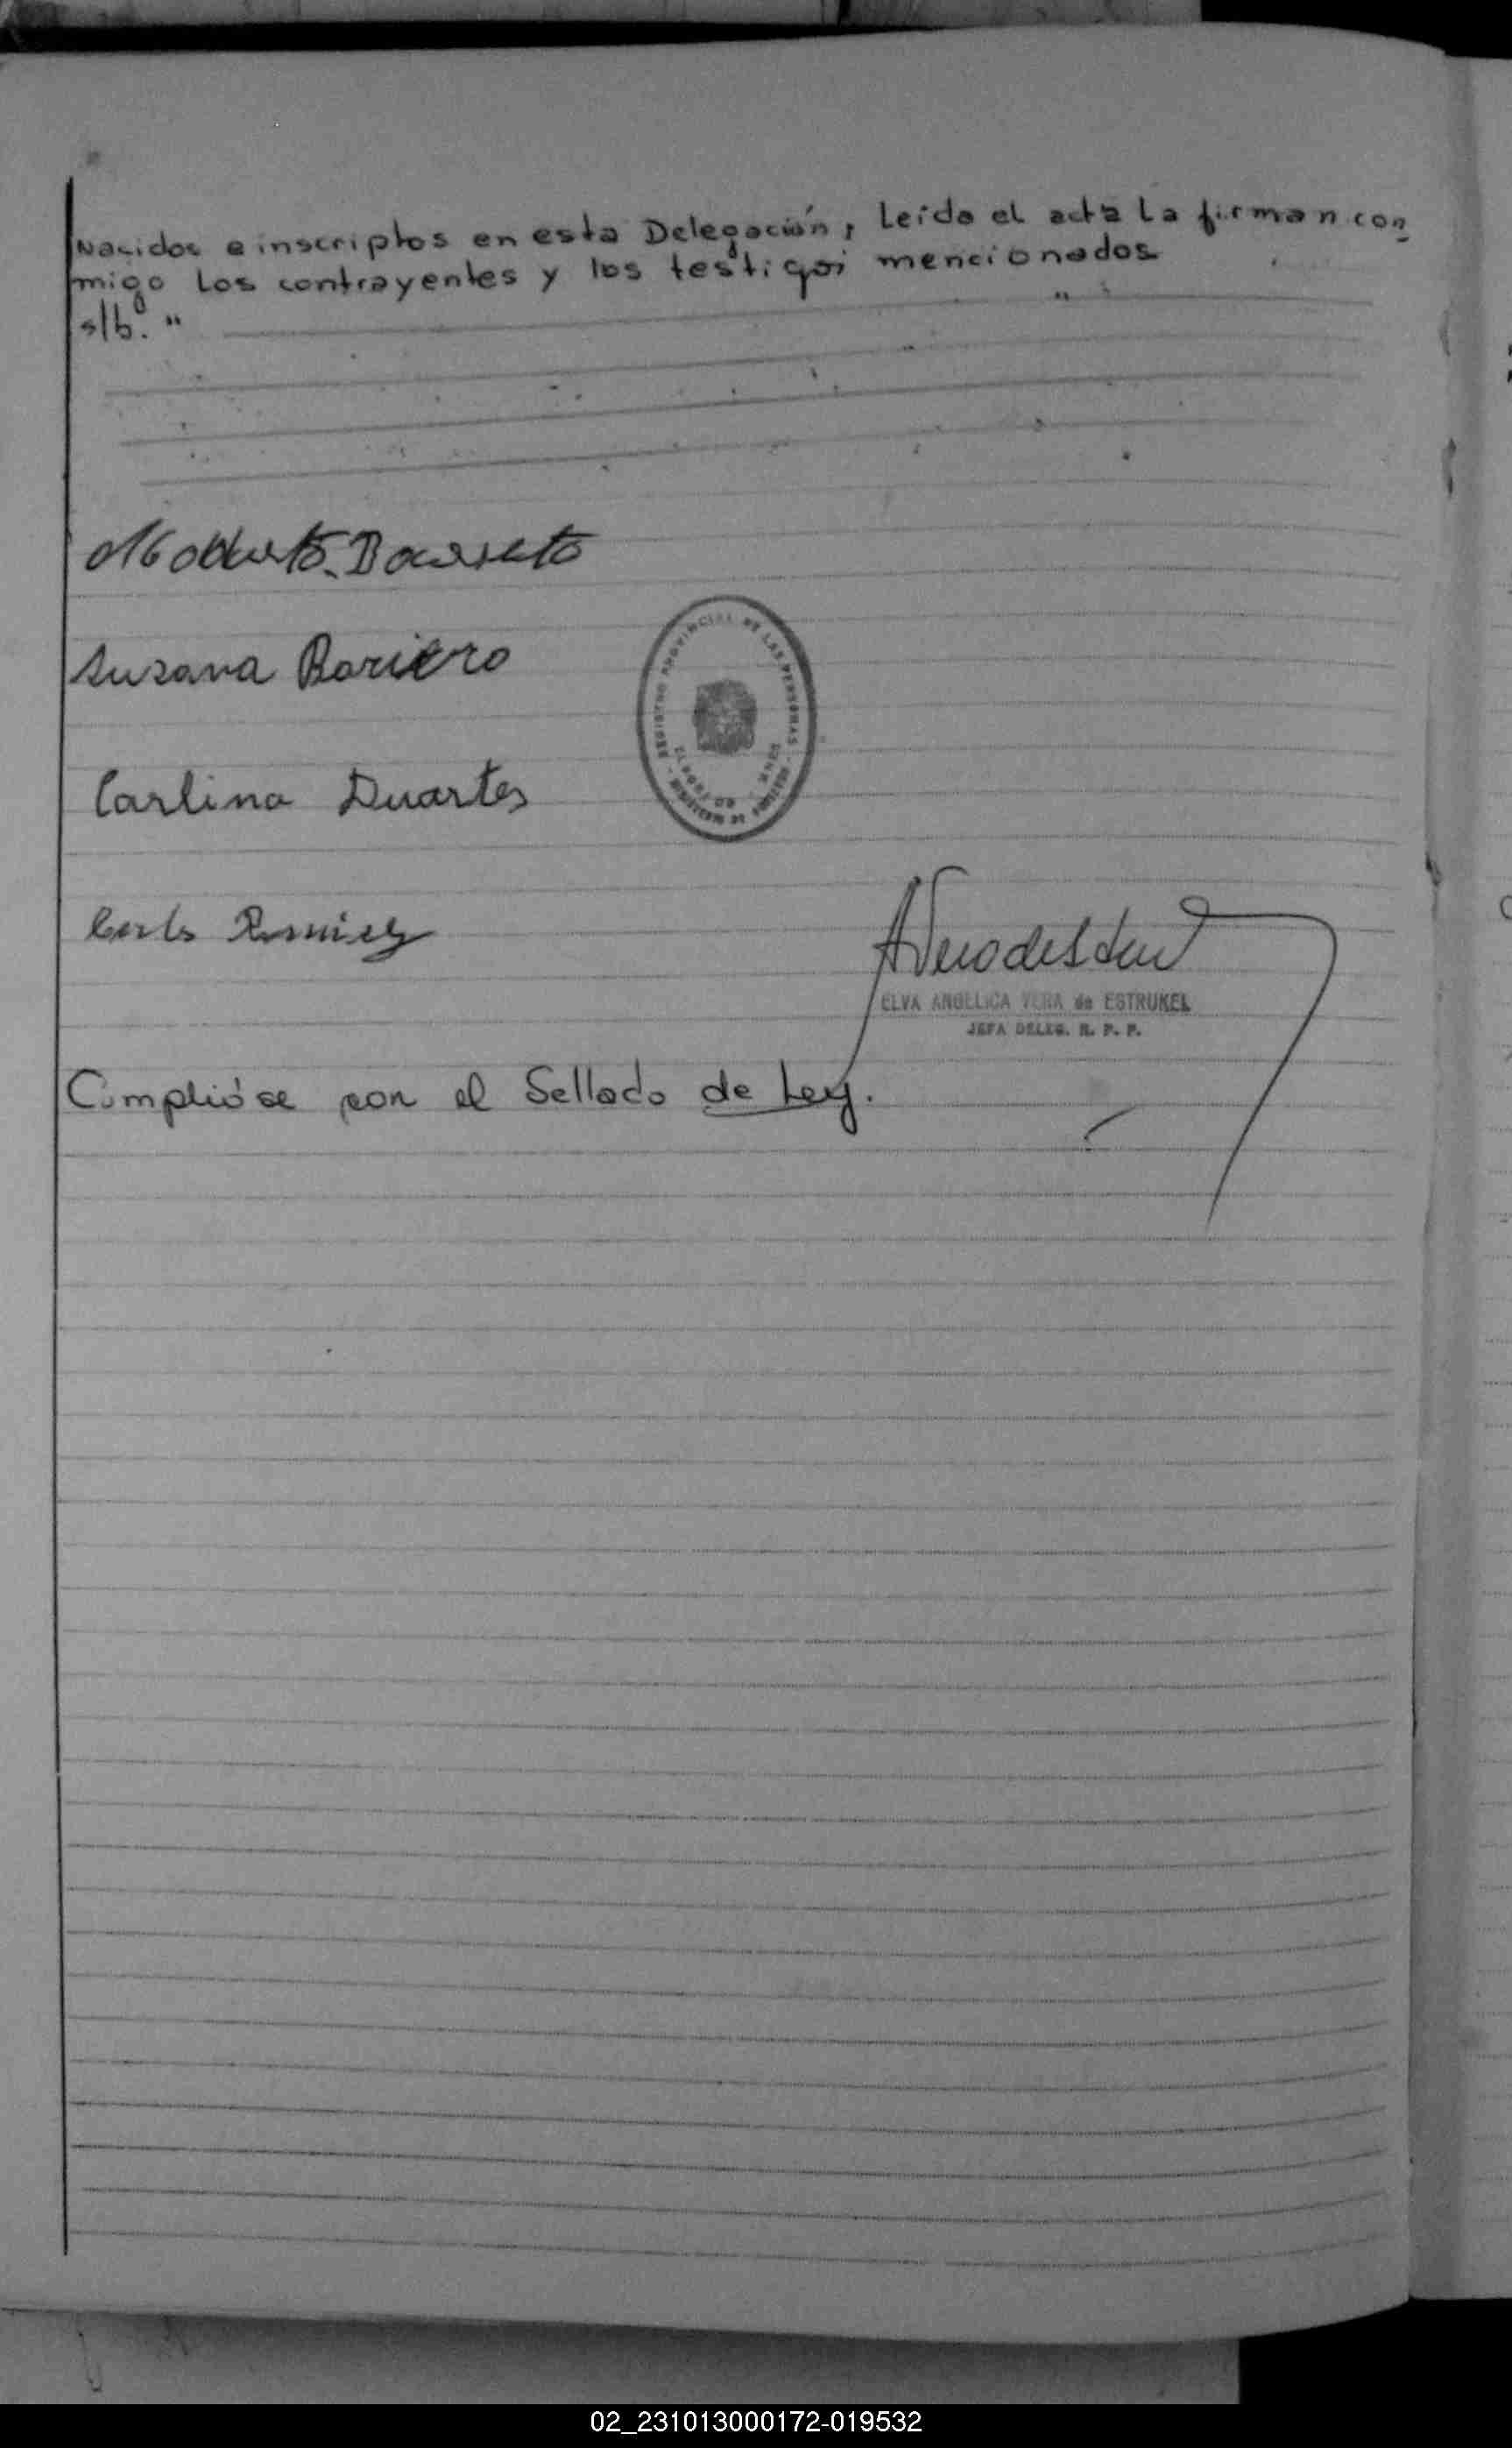 Nacidos e inscriptos en esta Delegación, Leída el acta la firman con
migo los contrayentes y los testigos mencionados
s/b. "
Barreto
Susana Bariero
Carlina Duartes
Carlos Ramirez
REGISTRO PROVINCIAL DE LAS PERSONAS
MINISTERIO DE GOBIERNO
ELVA ANGELICA VERA de ESTRUKEL
JEFA DELEG. R. P. P.
Cumplióse con el Sellado de Ley.
02_231013000172-019532